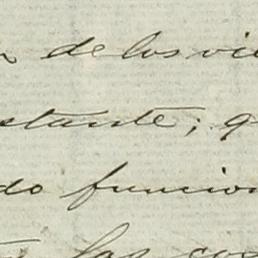 de los vie
stante; q
do funcion
las con